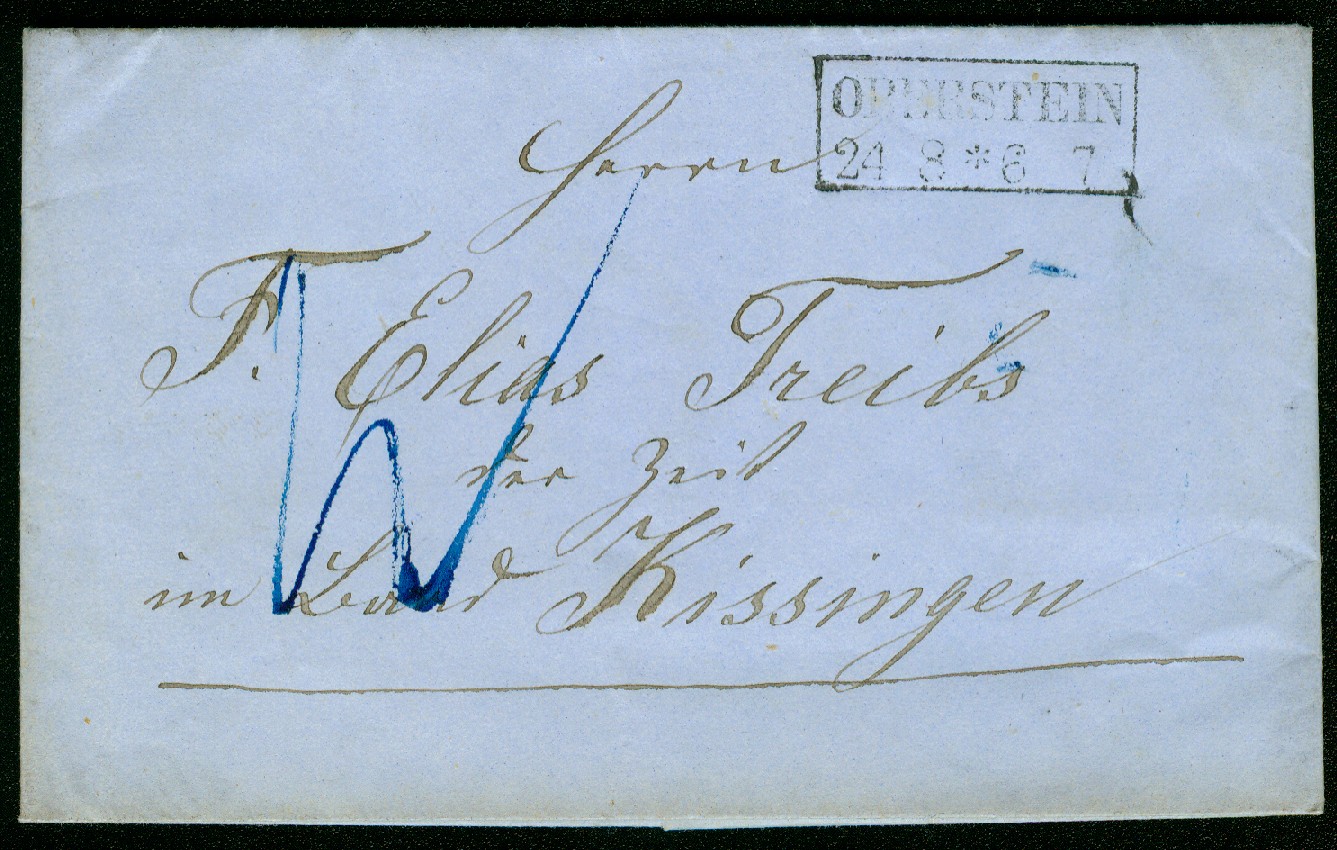 OBERSTEIN
24 8 * 6 7
Herrn
F. Elias Treibs
der Zeit
im Baad Kissingen